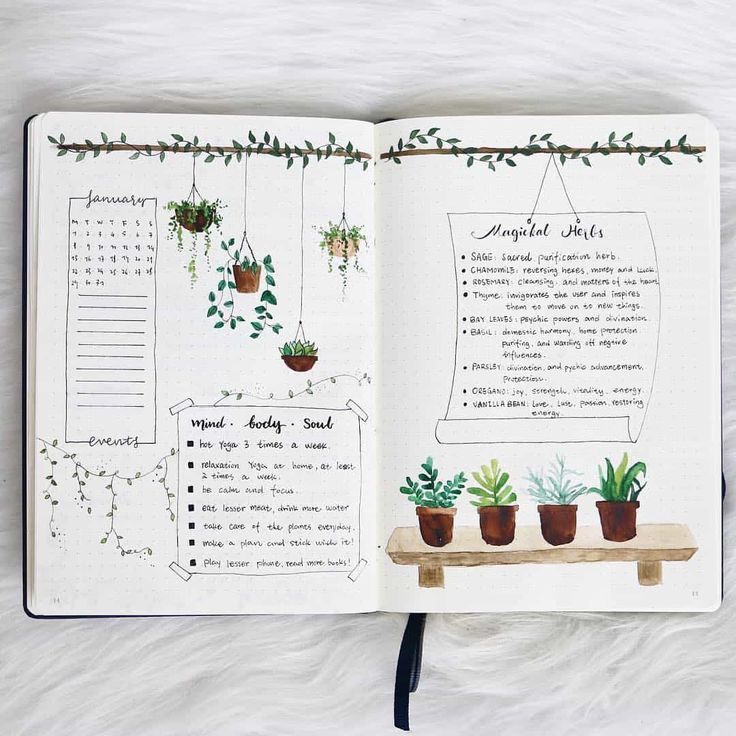 January
M T W T F S S
1 2 3 4 5 6 7
8 9 10 11 12 13 14
15 16 17 18 19 20 21
22 23 24 25 26 27 28
29 30 31
events
mind · body · Soul
hot Yoga 3 times a week.
relaxation Yoga at home, at least
2 times a week.
be calm and focus.
eat lesser meat, drink more water
take care of the plants everyday.
make a plan and stick wish it!
play lesser phone, read more books!
14
Magickal Herbs
SAGE: Sacred purification herb.
CHAMOMILE: reversing hexes, money and luck.
ROSEMARY: cleansing, and matters of the heart
Thyme: invigorates the user and inspires
them to move on to new things.
BAY LEAVES: psychic powers and divination.
BASIL: domestic harmony, home protection
purifing, and warding off negtive
influences.
PARSLEY: divination, and pychic advancement,
Protections.
OREGANO: joy, strength, vitality, energy.
VANILLA BEAN: Love, Lust, passion, restoring
energy.